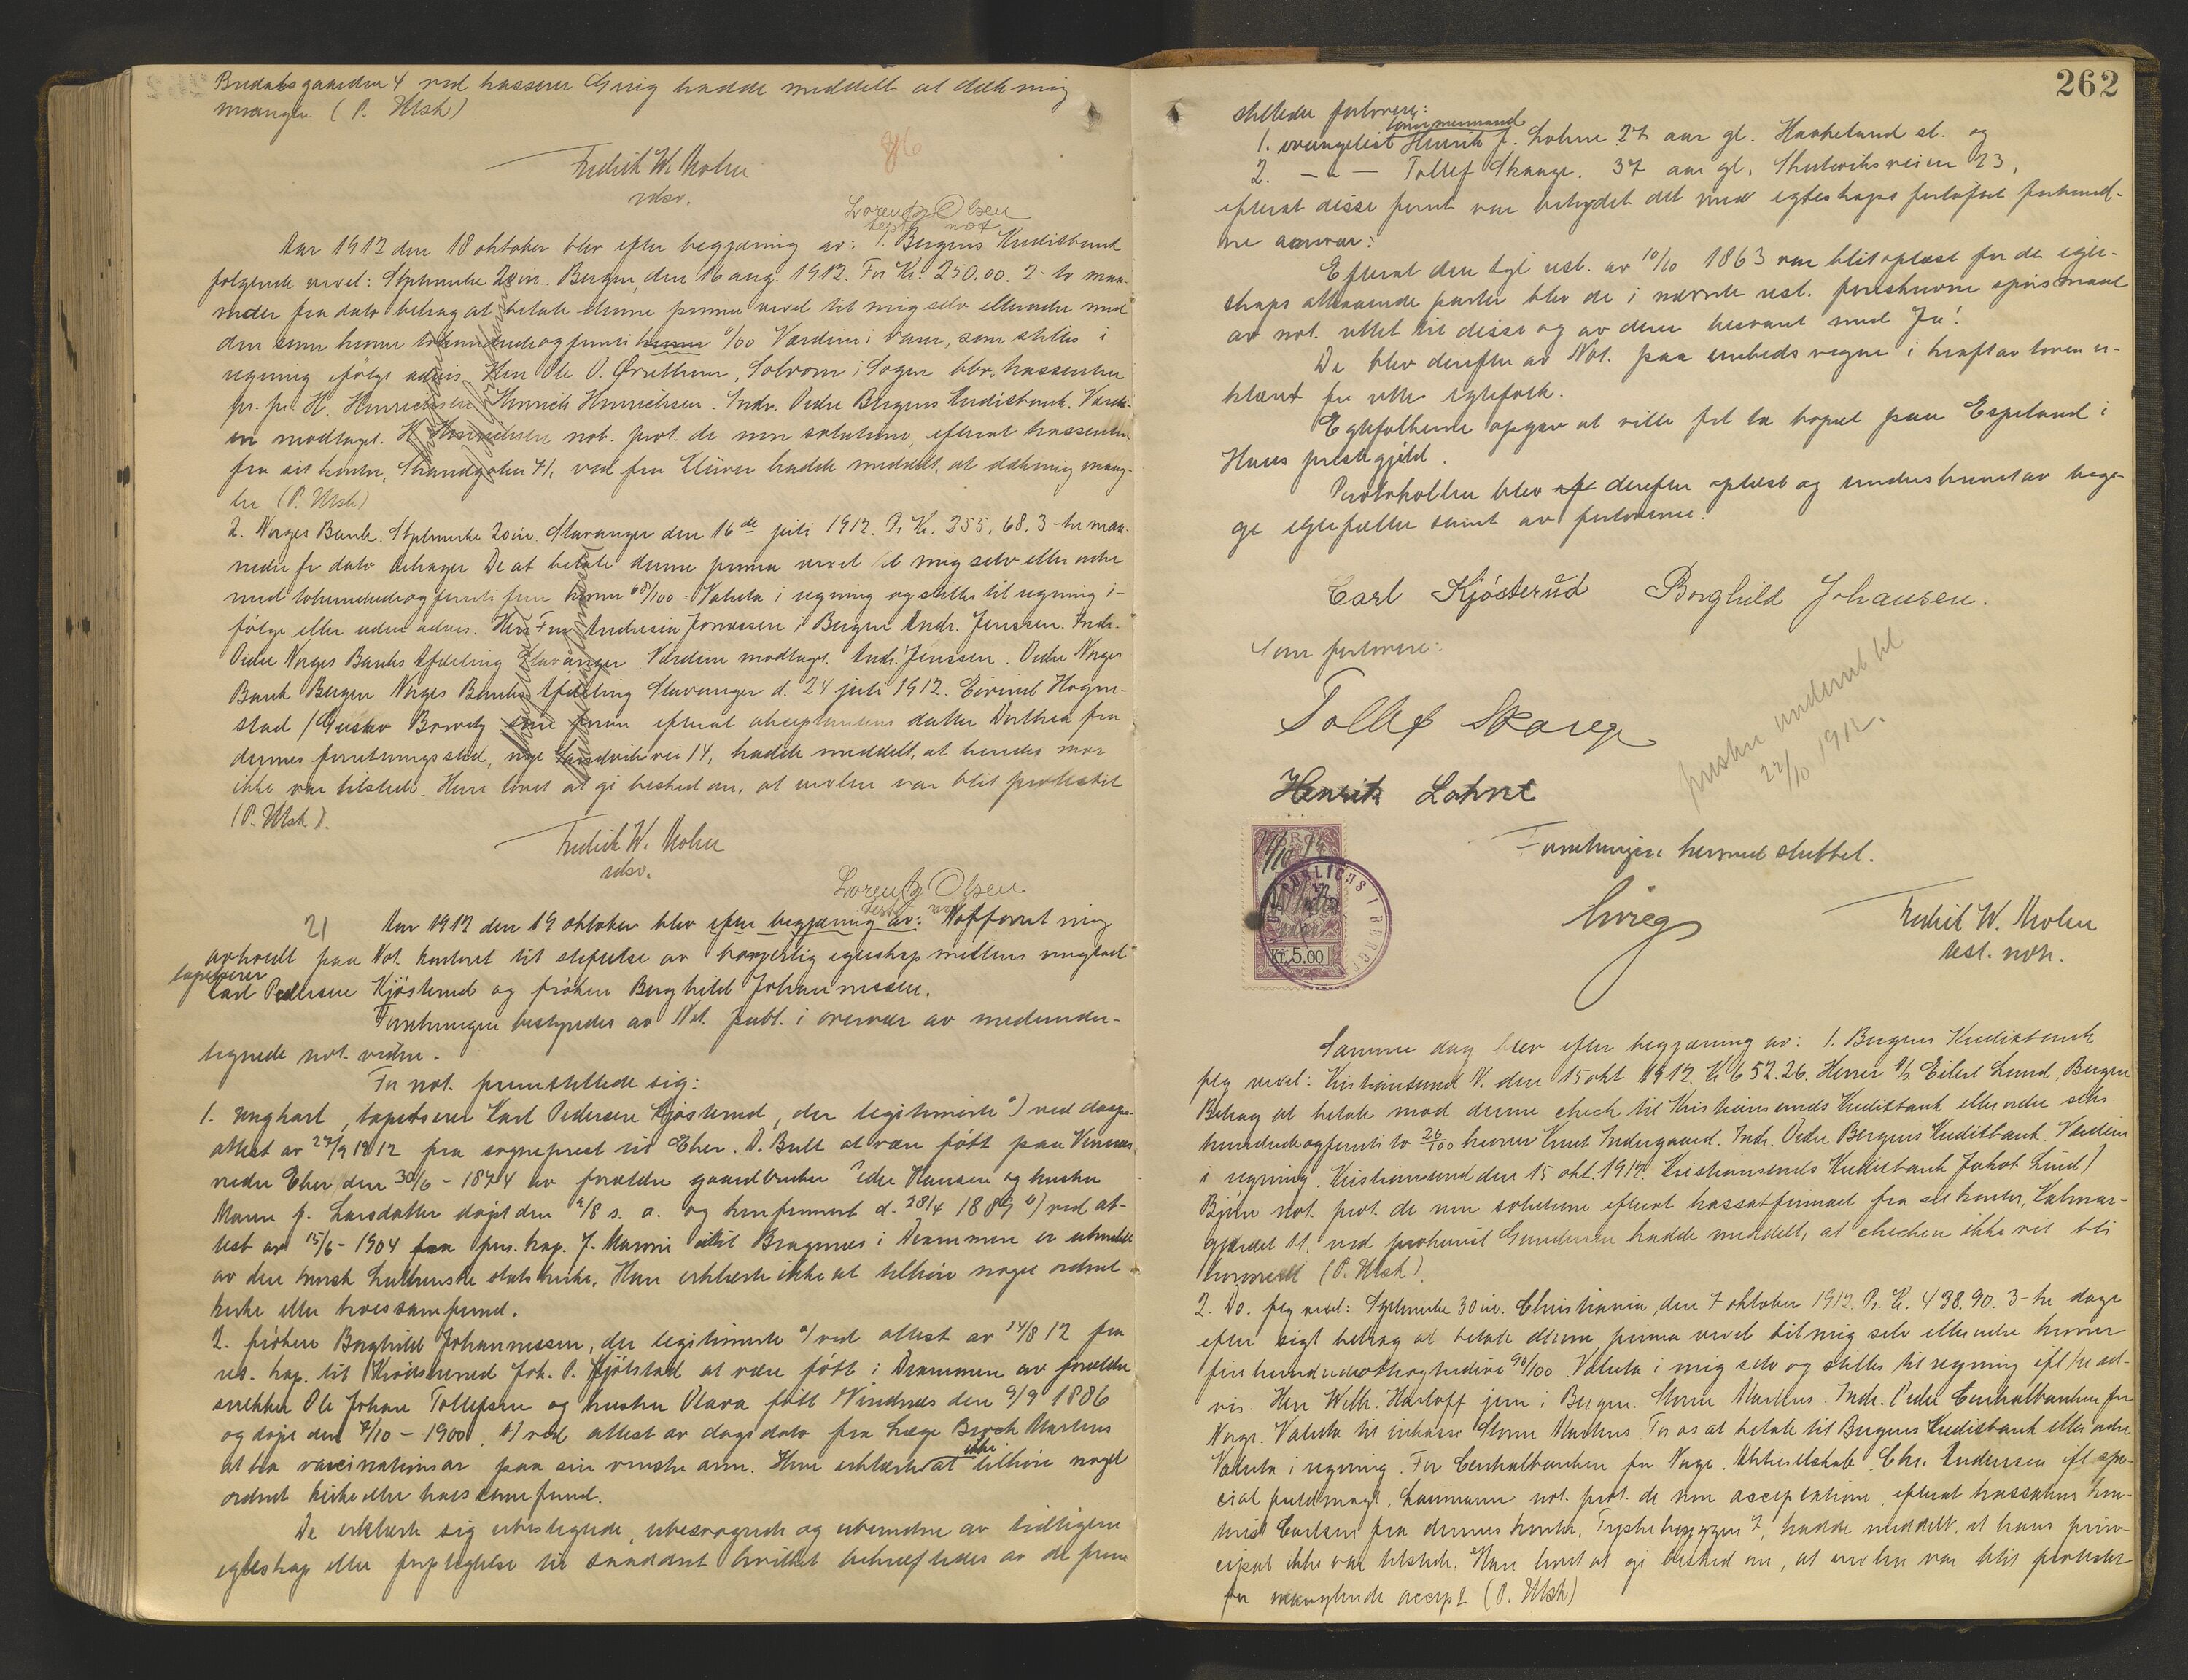 Bredalsgaarden 4 ved kasserer Grieg hadde meddelt at dækning
mangler (P. Utsh)
86
Fredrik W. Mohn
Lorentz Olsen
Aar 1912 den 18 oktober blev efter begjæring av: 1. Bergens Kreditbank
følgende vexel: Stplmerke 20 øre. Bergen, den 16 aug. 1912. For Kr. 250.00. 2-to maa-
neder fra dato behag at betale denne prima vexel til mig selv eller ordre med
den sum kroner tohundredeogfemti 0/00 Værdien i varer, som stilles i
regning ifølge advis. Herr Ole O. Ørrethun, Solvorn i Sogn
pr. pr. H. Hinrichsen Hinrich Hinrichsen. Indr. Ordre Bergens Kreditbank. Værdi-
en modtaget. H. Hinrichsen not. prot. de non solutione, efterat kassenten
fra sit kontor, Strandgaten 71, ved frk Klüver hadde meddelt, at dækning mang-
ler (P. Utsh)
2. Norges Bank. Stplmerke 20 øre. Stavanger den 16de juli 1912. Pr. Kr. 255,68. 3-tre maa-
neder fra dato behager De at betale denne prima vexel til mig selv eller ordre
med tohundredeogfemti fem kroner 68/100. Valuta i regning og stilles til regning i-
følge eller uden advis. Fru Andresia Jonassen i Bergen Andr. Jenssen. Indr.
Ordre Norges Banks Afdeling Stavanger. Værdien modtaget. Andr. Jenssen. Ordre Norges
Bank Bergen Norges Banks Afdeling Stavanger d. 24 juli 1912. Eivind Hogne-
stad / Gustav efterat akceptantens datter Dorthea fra
dennes forretningssted, nye Sandviksvei 14, hadde meddelt, at hendes mor
ikke var tilstede. Hun lovet at gi besked om, at vexlen var blit protestert
(P. Utsh).
Fredrik W. Mohn
Lorentz Olsen
21 Aar 1912 den 19 oktober blev efter begjæring av: Not forretning
avholdt paa Not. kontoret til stiftelse av borgerlig egteskap mellem ungkarl
tapetserer
Carl Pedersen Kjøsterud og frøken Borghild Johannessen.
Forretningen bestyredes av Not. publ. i overvær av medunder-
tegnede not. vidne.
For not. fremstillede sig:
1. ungkarl, tapetserer Karl Pedersen Kjøsterud, der legitimerte a) ved daaps-
attest av 27/9 1912 fra sogneprest til Eker. D. Bull at være født paa
nedre Eker den 30/6 - 1874 av forældre gaardbruker Peder Hansen og hustru
Maren J. Larsdatter døpt den 2/8 s. a. og konfirmert d. 28/4 1889 b) ved at-
test av 15/6 - 1904 fra pers. kap. J. til Bragernes i Drammen er utmeldt
av den norsk Lutherske statskirke. Han erklærte ikke at tilhøre noget ordnet
kirke eller trossamfund.
2. frøken Borghild Johannessen, der legitimerte a) ved attest av 14/8 12 fra
res. kap. til Krødshered Joh. P. Kjølstad at være født i Drammen av forældre
snekker Ole Johan Tollefsen og hustru Olava født Windnæs den 9/9 1886
og døpt den 7/10 - 1900, b) ved attest av dags dato fra Læge Birch Martens
at ha vaccinationsar paa sin venstre arm. Hun erklærte at ikke tilhøre noget
ordnet kirke eller trossamfund.
De erklærte sig ubeslegtede, ubesvogrede og uhindret av tidligere
egteskap eller forplegtelse til saadant hvilket bekræftedes av de frem
262
stillede forlovere:
tømmermand
1. evangelist Henrik J. Lohne 27 aar gl. Haakeland st. og
2. — " — Tollef Skaage. 37 aar gl. Skuteviksveien 23,
efterat disse først var betydet det med egteskaps forløfte forbund-
ne ansvar:
Efterat den kgl. resl. av 10/10 1863 var blit oplæst for de egte-
skaps attraaende parter blev de i nævnte resl. foreskrevne spørsmaal
av not. rettet til disse og av dem besvaret med Ja!
De blev derefter av Not. paa embeds vegne i kraft av loven er-
klært for rette egtefolk.
Egtefolkene opgav at ville fst. ta bopæl paa Espeland i
Haus prestegjeld.
Protokollen blev derefter oplæst og underskrevet av beg-
ge egtefæller samt av forloverne.
Carl Kjösterud Borghild Johansen.
Som forlovere:
Tollef Skaage
Henrik Lohne
presten underret bl
22/10 1912.
Forretningen hermed sluttet.
Kr. 5.00
Fredrik W. Mohn
Samme dag blev efter begjæring av: 1. Bergens Kreditbank
flg vexel: Kristiansund N. den 15 okt 1912. Kr 652.26. Herrer A/S Eilert Lund, Bergen
Behag at betale mod denne check til Kristiansunds Kreditbank eller ordre seks
hundredeogfemti to 26/100 kroner Knut Indergaard. Indr. Ordre Bergens Kreditbank. Værdien
i regning. Kristiansund den 15 okt. 1912. Kristiansunds Kreditbank Jakob Lund /
Bjørn not. prot. de non solutione efterat trassatfirmaet fra sit kontor, Kalmar-
gjærdet 11, ved prokurist Gundersen hadde meddelt, at checken ikke vil bli
honorert (P. Utsh).
2. Do. flg vexel: Stplmerke 30 øre. Christiania, den 7 oktober 1912. Pr. Kr. 438.90. 3-tre dage
efter sigt behag at betale denne prima vexel til mig selv eller ordre kroner
firehundredeottiogtredive 90/100. Valuta i mig selv og stilles til regning ifl/re ad-
vis. Herr Wilh. Harloff jun i Bergen. Storm Martens. Indr. Ordre Centralbanken for
Norge. Valuta til inkasso Storm Martens. For os at betale til Bergens Kreditbank eller ordre
Valuta i regning. For Centralbanken for Norge. Aktieselskab. Chr. Andersen ifl spe-
cial fuldmagt, Laumann not. prot. de non acceptatione, efterat trassatens kon-
torist Carlsen fra dennes kontor, Tyskebryggen 7, hadde meddelt, at hans prin-
cipal ikke var tilstede. Han lovet at gi besked om, at vexlen var blit protestert
for manglende accept (P. Utsh)